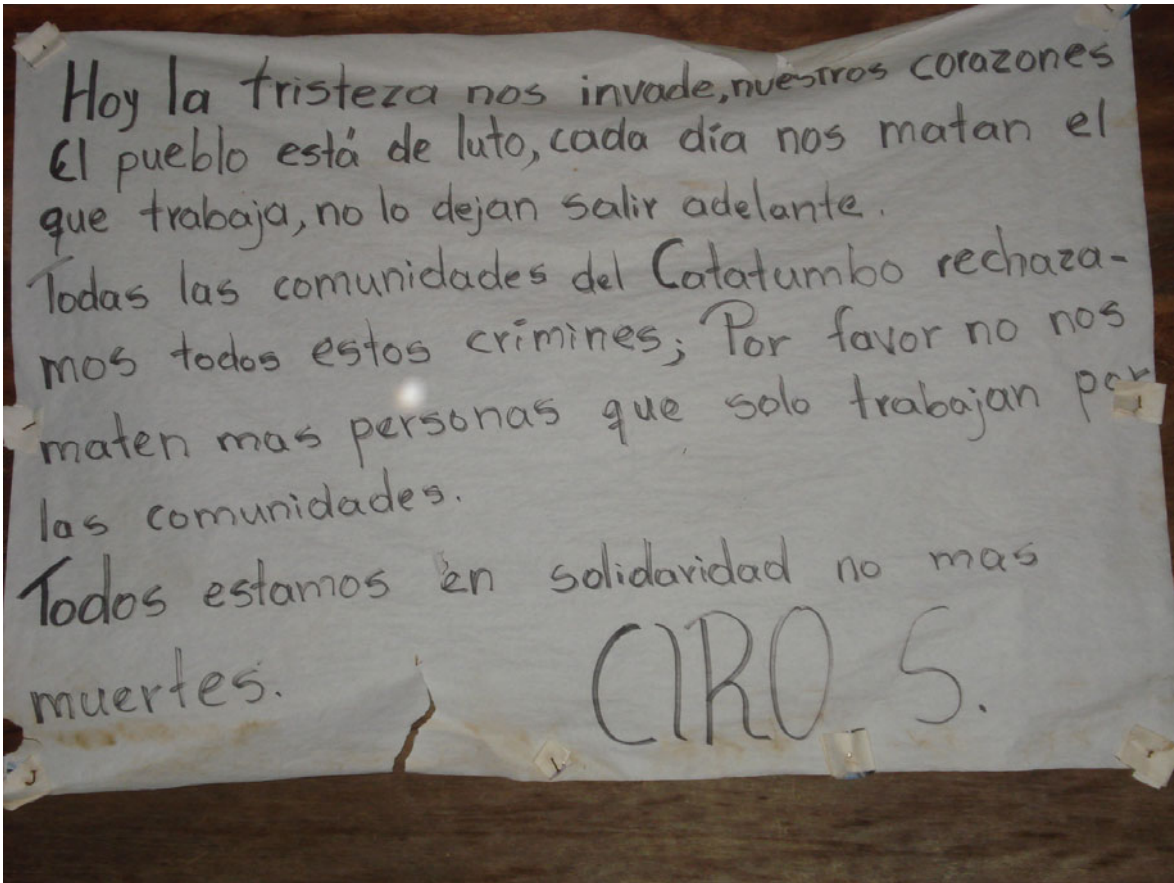 Hoy la tristeza nos invade, nuestros corazones
El pueblo está de luto, cada día nos matan el
que trabaja, no lo dejan salir adelante.
Todas las comunidades del Catatumbo rechaza-
mos todos estos crimines; Por favor no nos
maten mas personas que solo trabajan por
las comunidades.
Todos estamos en solidaridad no mas
muertes. CIRO S.